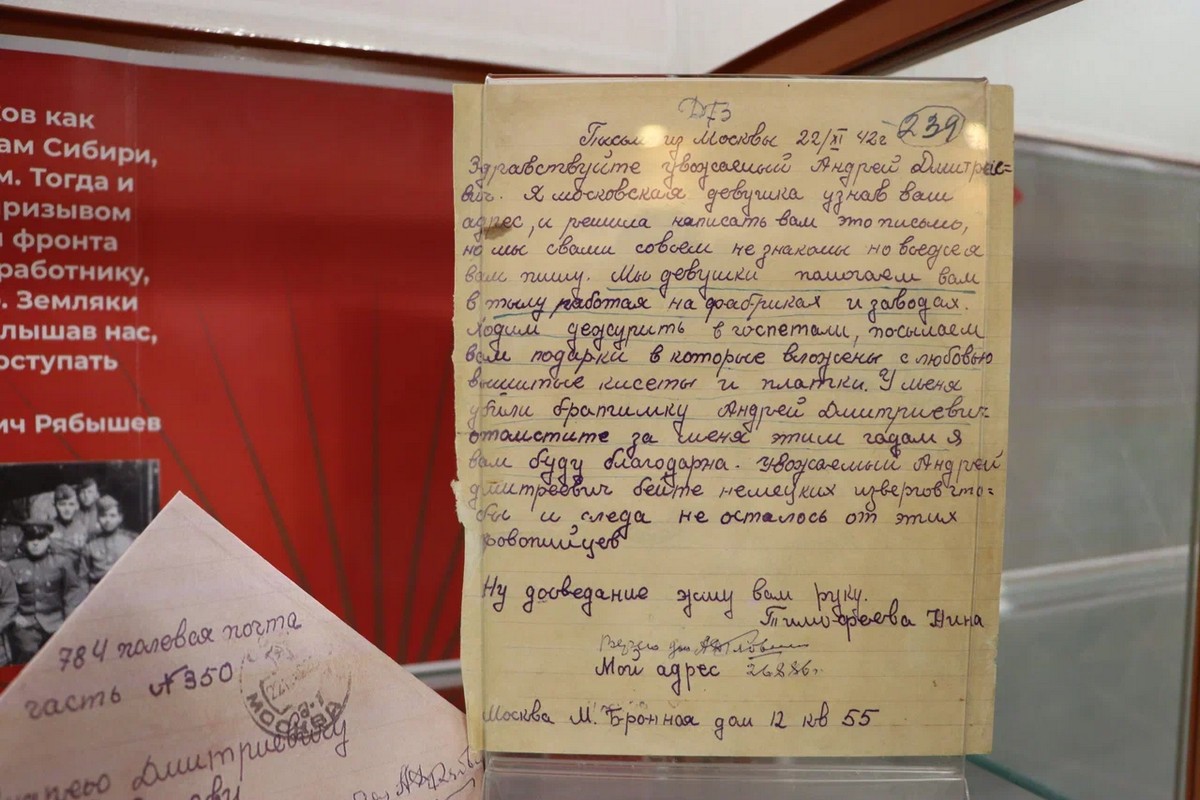 ков как
ам Сибири,
м. Тогда и
ризывом
и фронта
работнику,
. Земляки
лышав нас,
оступать
ич Рябышев
239
Письм из Москвы 22/XI 42г
Здравствуйте уважаемый Андрей Дмитрие=
вич. Я московская девушка узнав ваш
адрес, и решила написать вам это письмо,
но мы свами совсем не знакомы но вседже я
вам пишу. Мы девушки памогаем вам
в тылу работая на фабриках и заводах.
Ходим дежурить в госпетали, посылаем
вам подарки в которые вложены с любовью
вышитые кисеты и платки. У меня
убили братишку Андрей Дмитриевич
отомстите за меня этим гадам я
вам буду благодарна. Уважаемый Андрей
Дмитреевич бейте немецких извергов что=
бы и следа не осталось от этих
кровопийцев
Ну досведание жму вам руку.
Тимофеева Нина
Мой адрес
Москва М. Бронная дом 12 кв 55
784 полевая почта
часть №350
МОСКВА
Дмитриевичу